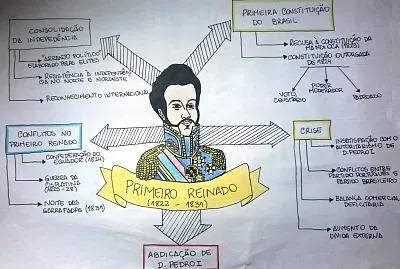 CONSOLIDAÇÃO
DA INDEPEDÊNCIA
"ARRANJO POLÍTICO"
ELABORADO PELAS ELITES
RESISTÊNCIA À INDEPENDÊN-
CIA NO NORTE E NORDESTE
RECONHECIMENTO INTERNACIONAL
PRIMEIRA CONSTITUIÇÃO
DO BRASIL
RECUSA À CONSTITUIÇÃO DA
MANDIOCA (1823)
CONSTITUIÇÃO OUTORGADA
DE 1824
VOTO
CENSITÁRIO
PODER
MODERADOR
PADROADO
CONFLITOS NO
PRIMEIRO REINADO
CONFEDERAÇÃO DO
EQUADOR (1824)
GUERRA DA
CISPLATINA
(1825-28)
NOITE DAS
GARRAFADAS (1831)
PRIMEIRO REINADO
(1822 - 1831)
CRISE
INSATISFAÇÃO COM O
AUTORITARISMO DE
D. PEDRO I
CONFLITOS ENTRE
PARTIDO PORTUGUÊS E
PARTIDO BRASILEIRO
BALANÇA COMERCIAL
DEFICITÁRIA
AUMENTO DA
DÍVIDA EXTERNA
ABDICAÇÃO DE
D. PEDRO I